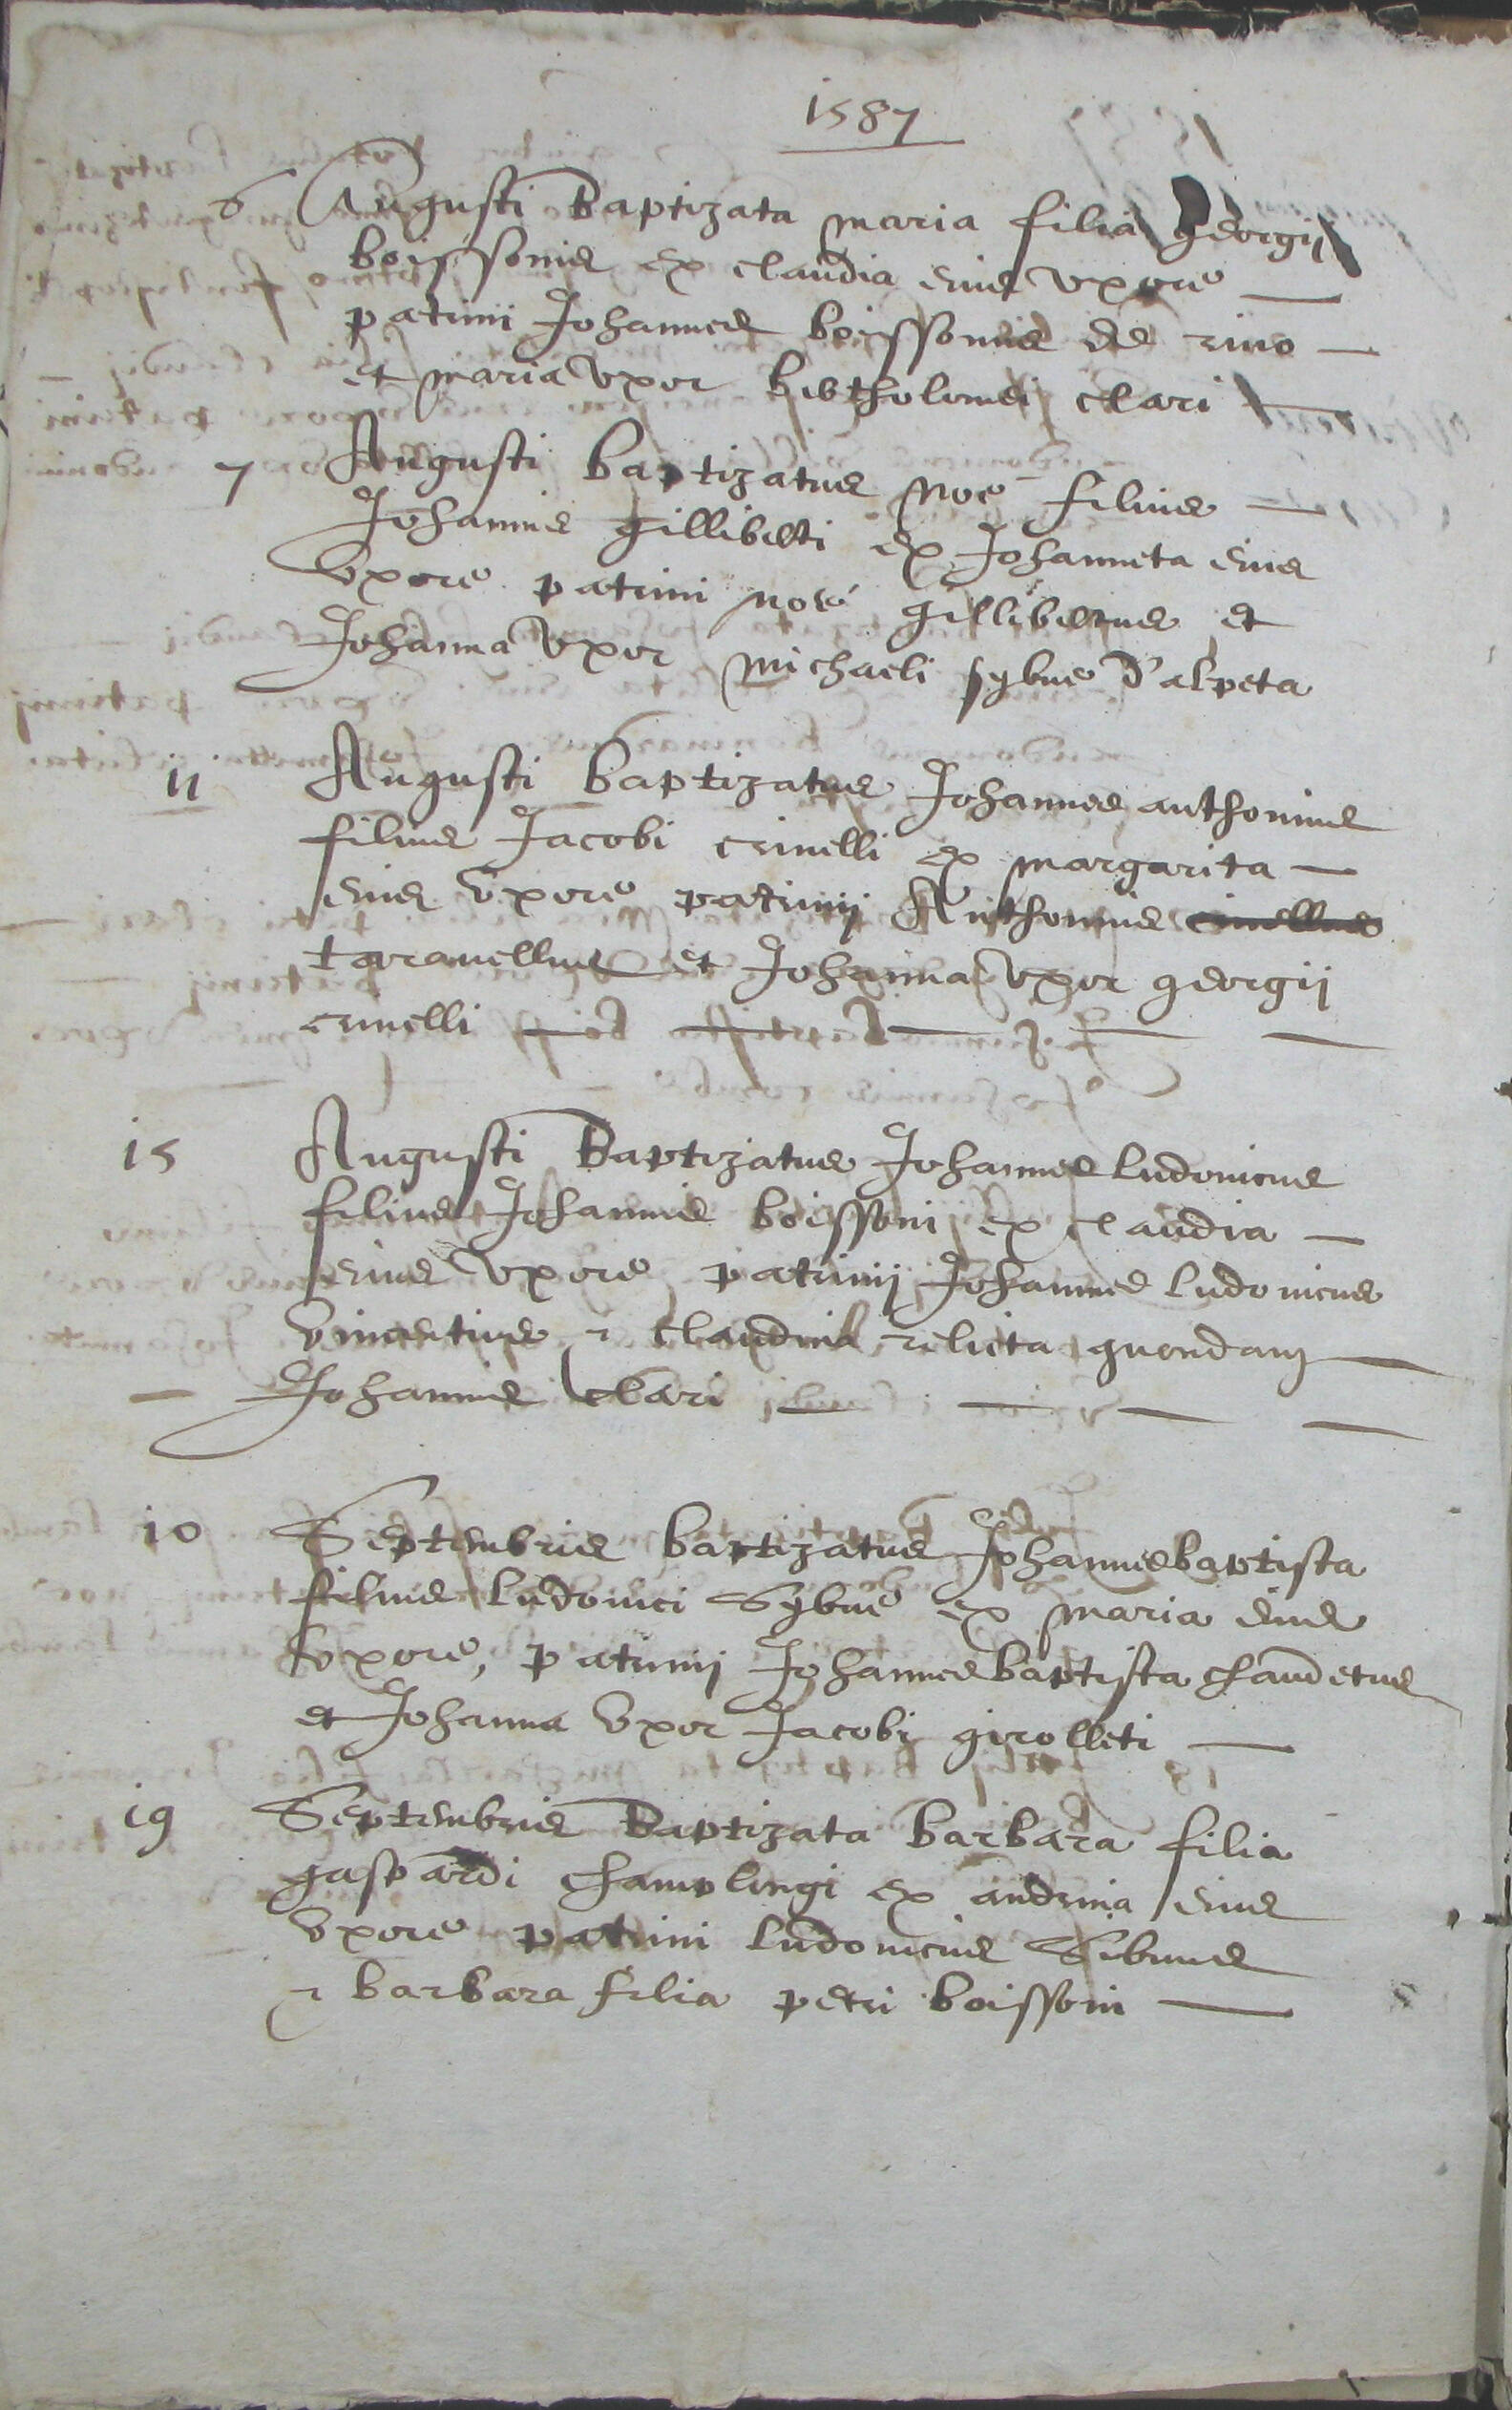 1587
6 Augusti baptizata maria filia georgii
boissonis ex claudia eius uxore
patrini Johannes boissonus de rivo
et maria uxor bertholomei clari
7 Augusti baptizatus noe filius
Johannis gilliberti ex Johanneta eius
uxore patrini noé gillibertus et
Johanna uxor michaeli sybue d'alpeta
11 Augusti baptizatus Johannes anthonius
filius Jacobi crinelli ex margarita
eius uxore patrinij Anthonius crinellus
taravellus et Johanna uxor georgij
crinelli
15 Augusti baptizatus Johannes ludovicus
filius Johannis boissoni ex claudia
eius uxore patrinij Johannes ludovicus
vincentius & claudina relicta quondam
Johannis clari
10 Septembris baptizatus Johannes baptista
filius ludovici Sybue ex maria eius
uxore, patrinij Johannes baptista chaudetus
et Johanna uxor Jacobi girolleti
19 Septembris baptizata barbara filia
gaspardi champlongi ex andrina eius
uxore patrini ludovicus Sibuus
& barbara filia petri boissoni